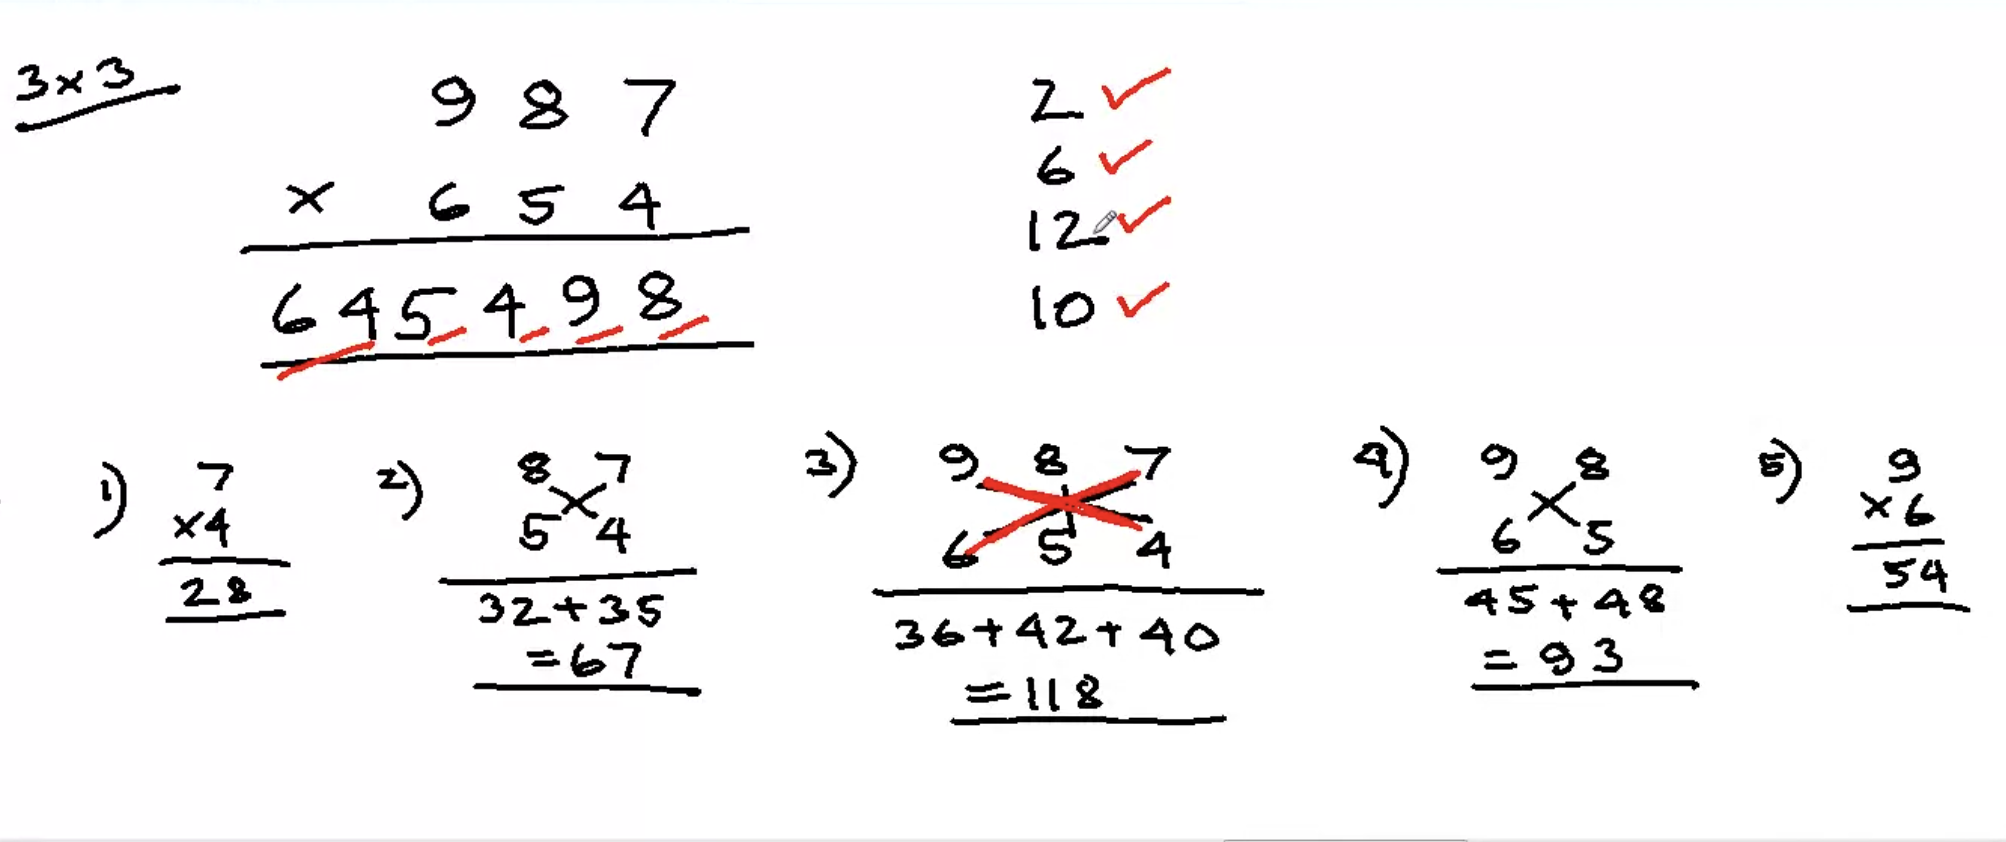 3×3
9 8 7
× 6 5 4
6 4 5 4 9 8
2 ✓
6 ✓
12 ✓
10 ✓
1) 7
×4
28
2) 8 7
5 4
32+35
=67
3) 9 8 7
6 5 4
36+42+40
=118
4) 9 8
6 5
45+48
=93
5) 9
×6
54